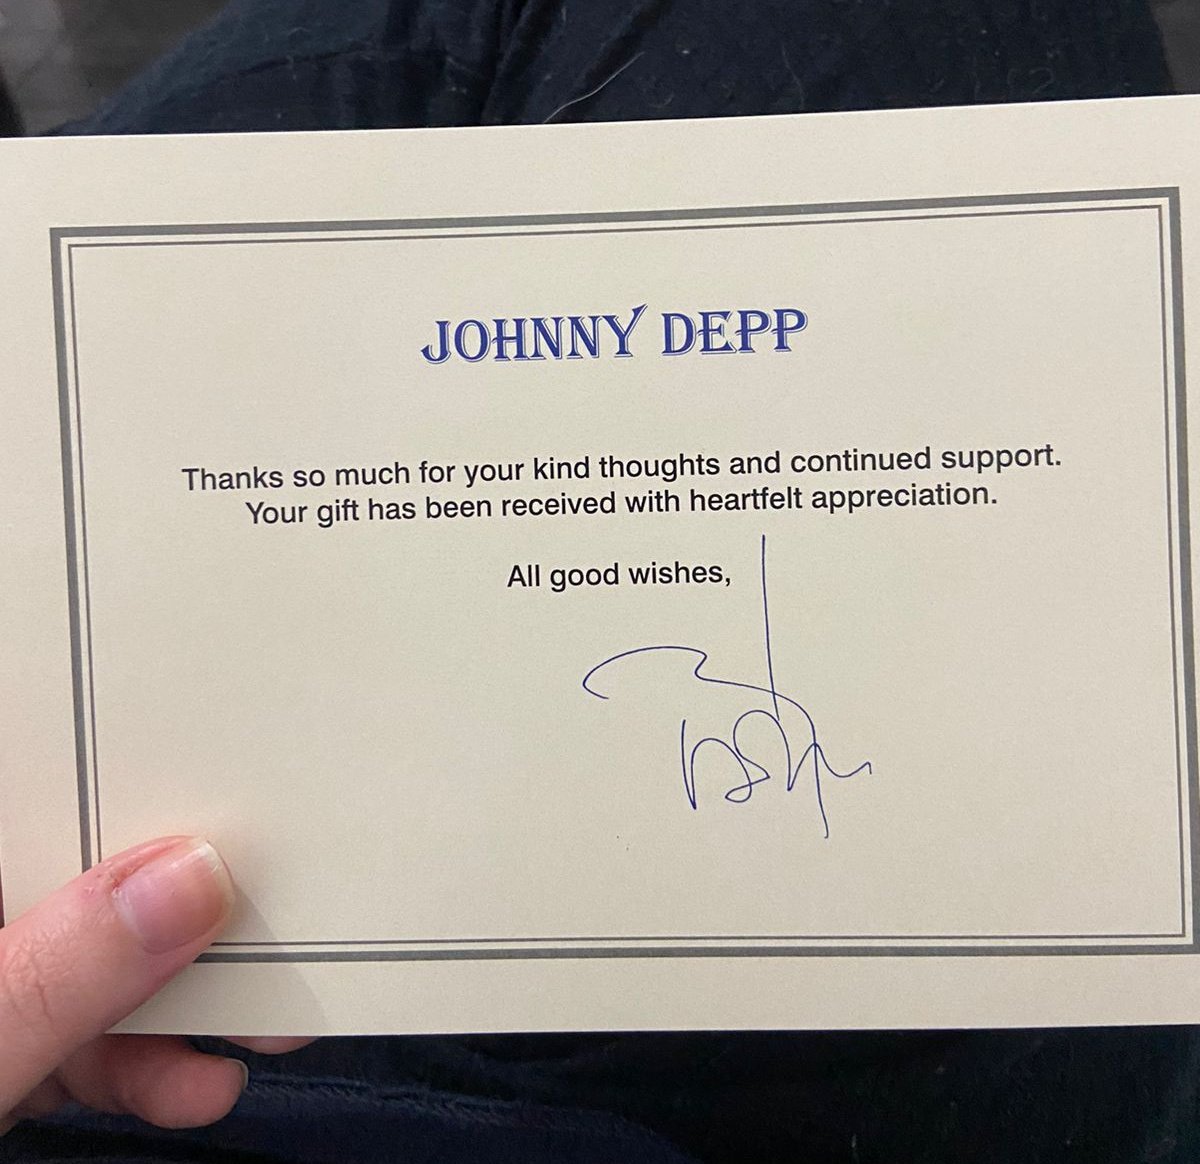 JOHNNY DEPP
Thanks so much for your kind thoughts and continued support.
Your gift has been received with heartfelt appreciation.
All good wishes,